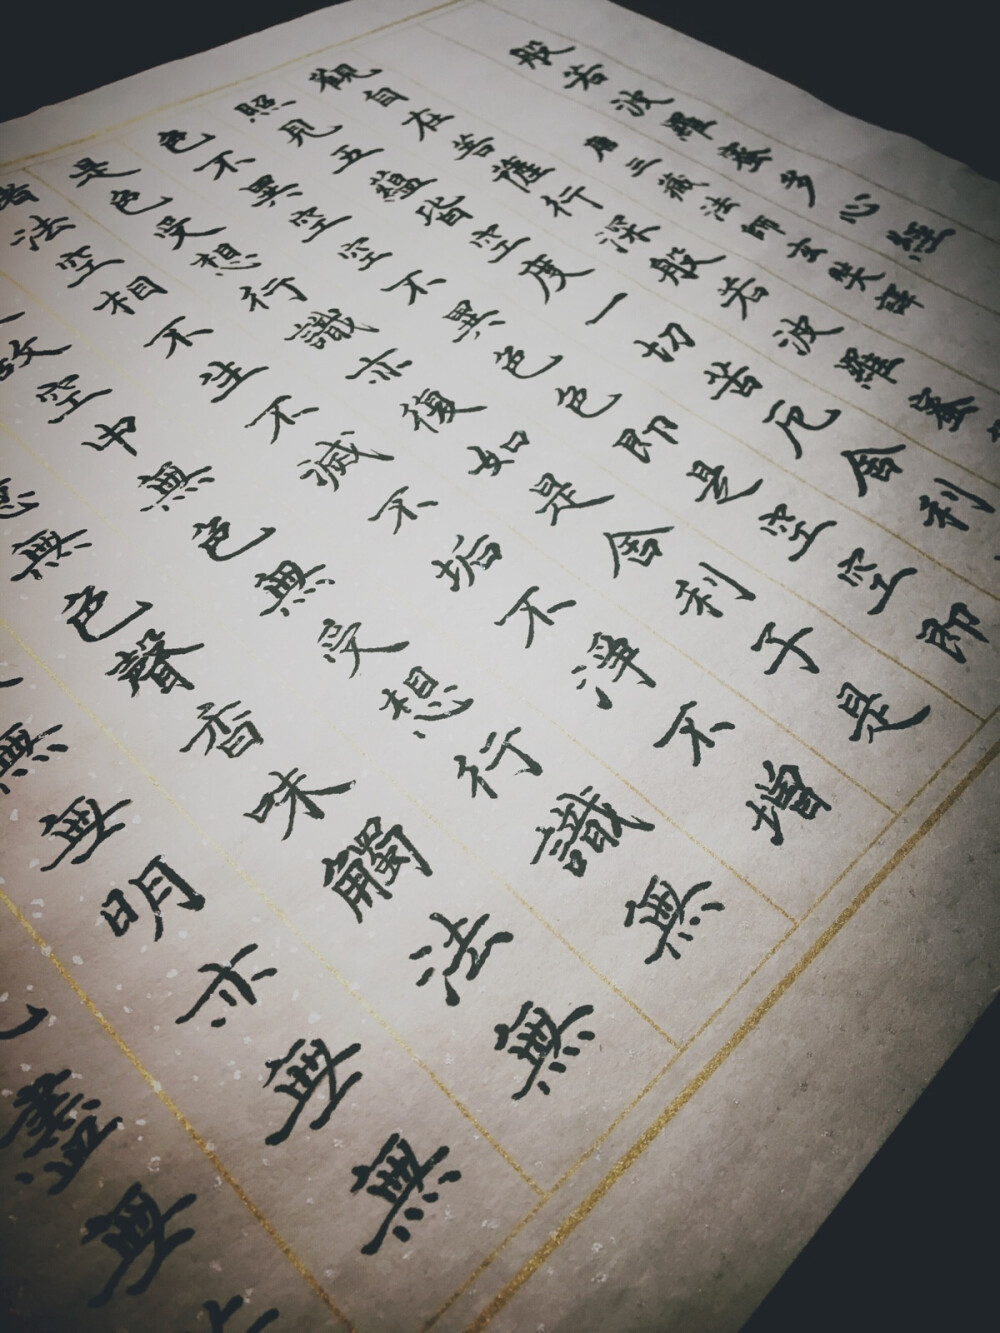 般若波羅蜜多心經
唐三藏法師玄奘譯
觀自在菩薩行深般若波羅蜜
照見五蘊皆空度一切苦厄舍利
色不異空空不異色色即是空空即
是色受想行識亦復如是舍利子是
諸法空相不生不滅不垢不淨不增
故空中無色無受想行識無
意無色聲香味觸法無
無無明亦無無
盡無